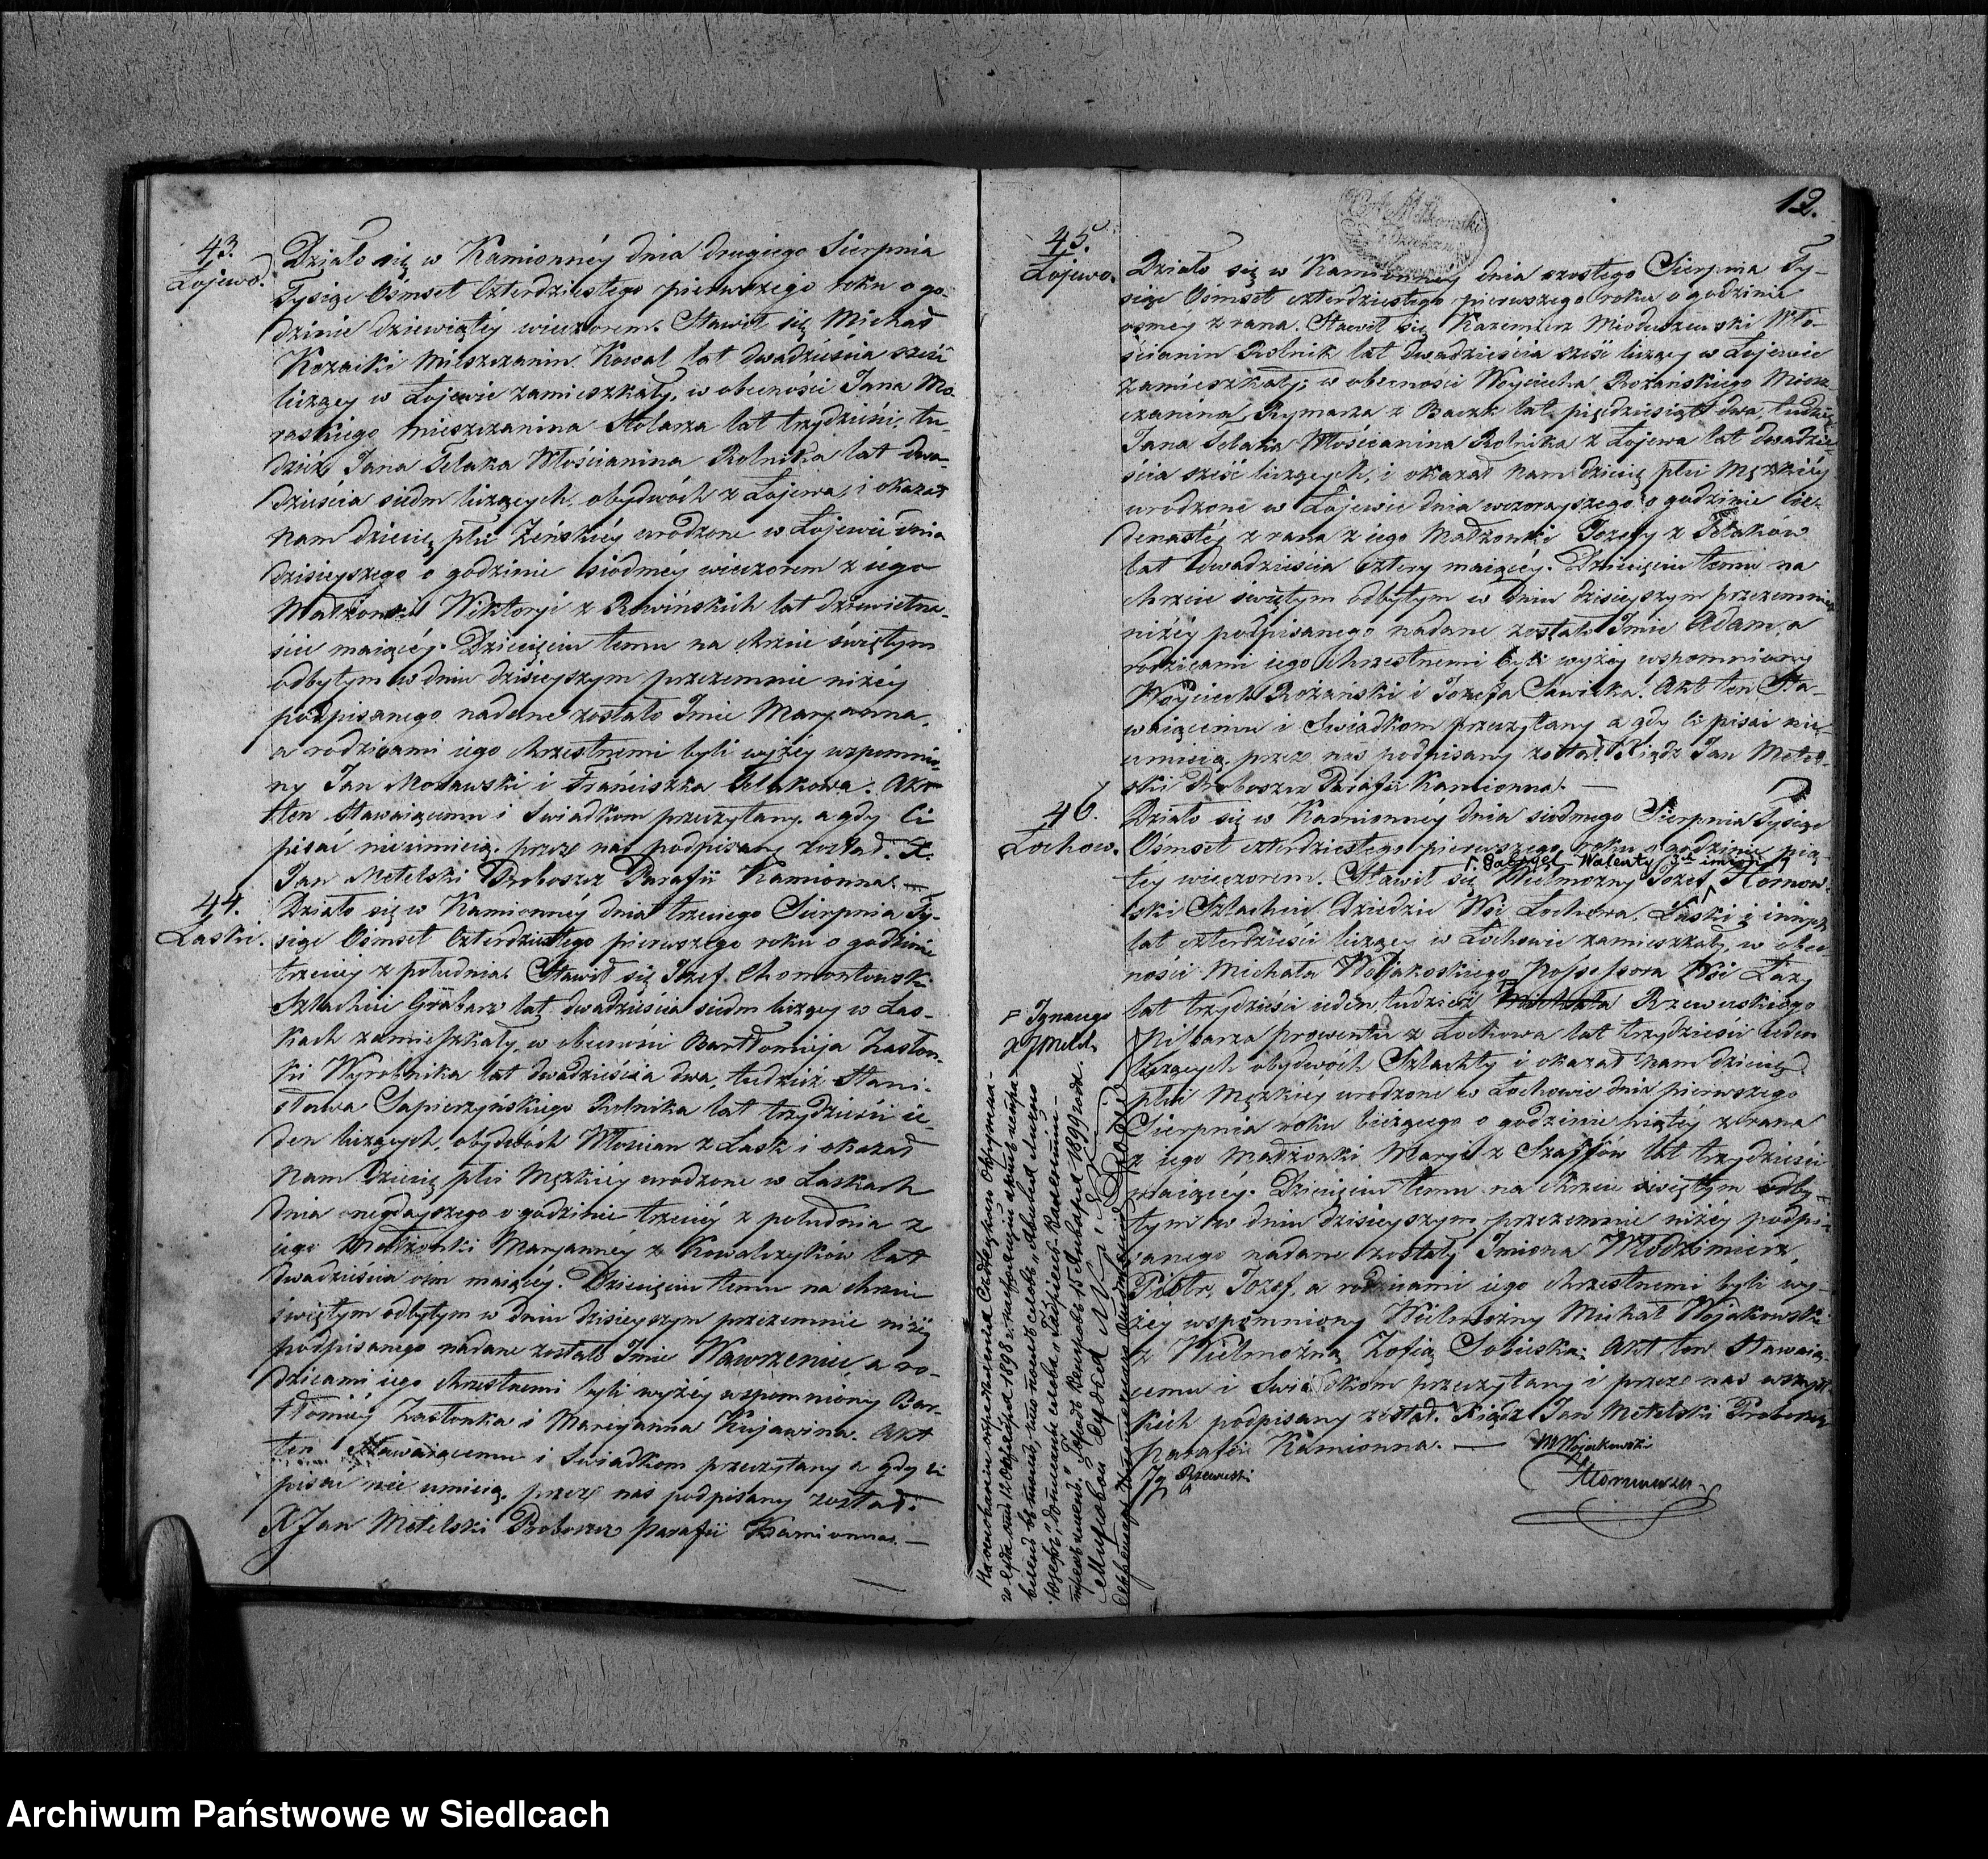 43.
Łojewo.
Działo się w Kamionnéy dnia drugiego Sierpnia
Tysiąc Ośmset Czterdziestego pierwszego roku o go-
dzinie dziewiątéy wieczorem. Stawił się Michał
Kozacki Mieszczanin Kowal lat dwadzieścia sześć
liczący w Łojewie zamieszkały, w obecności Jana Mo-
rawskiego Mieszczanina Stolarza lat trzydzieści, tu-
dzież Jana Selaka Włościanina Rolnika lat dwa-
dzieścia siedm liczących, obydwóch z Łojewa, i okazał
nam dziecię płci Żeńskiéy urodzone w Łojewie dnia
dzisieyszego o godzinie siódméy wieczorem z iego
Małżonki Wiktoryi z Rowińskich lat dziewietna-
ście maiącéy. Dziecięciu temu na chrzcie świętym
odbytym w dniu dzisieyszym przezemnie niżéy
podpisanego nadane zostało Imie Maryanna,
a rodzicami iego chrzestnemi byli wyżéy wspomnio-
ny Jan Morawski i Franciszka Selakowa. Akt
ten stawaiącemu i Świadkom przeczytany, a gdy Ci
pisać nieumieią, przez nas podpisany został. X.
Jan Metelski Proboszcz Parafii Kamionna. —
44.
Laski.
Działo się w Kamionnéy dnia trzeciego Sierpnia Ty-
siąc Ośmset Czterdziestego pierwszego roku o godzinie
trzeciéy z południa. Stawił się Józef Chomontowski
Szlachcic Grabarz lat dwadzieścia siedm liczący w Las-
kach zamieszkały, w obecności Bartłomieja Zasłon-
ki Wyrobnika lat dwadzieścia dwa, tudzież Stani-
sława Sapierzyńskiego Rolnika lat trzydzieści ie-
den liczących, obydwóch Włościan z Lask i okazał
nam Dziecię płci Męzkiéy urodzone w Laskach
dnia onegdayszego o godzinie trzeciéy z południa z
iego Małżonki Maryannéy z Kowalczyków lat
dwadzieścia ośm maiącéy. Dziecięciu temu na chrzcie
świętym odbytym w dniu dzisieyszym przezemnie niżéy
podpisanego nadane zostało Imie Wawrzeniec a ro-
dzicami iego chrzestnemi byli wyżéy wspomniony Bar-
tłomiéy Zasłonka i Maryanna Kujawina. Akt
ten Stawaiącemu i Świadkom przeczytany a gdy ci
pisać nie umieią, przez nas podpisany został.
X Jan Metelski Proboszcz parafii Kamionna. —
12.
45.
Łojewo.
Działo się w Kamionney dnia szostego Sierpnia Ty-
siąc Ośmset czterdziestego pierwszego roku o godzinie
osméy z rana. Stawił się Kazimierz Mioduszewski Wło-
ścianin Rolnik lat dwadzieścia sześć liczący w Łojewie
zamieszkały; w obecności Woyciecha Rożańskiego Miesz-
czanina Rymarza z Baczk lat pięćdziesiąt dwa, tudzież
Jana Selaka Włościanina Rolnika z Łojewa lat dwadzie-
ścia sześć liczących, i okazał nam dziecię płci Męzkiéy
urodzone w Łojewie dnia wczorayszego o godzinie ie-
denastéy z rana z iego Małżonki Jozefy z Selaków
lat dwadzieścia cztery maiącéy. Dziecięciu temu na
chrzcie świętym odbytym w dniu dzisieyszym przezemnie
niżéy podpisanego nadane zostało Imie Adam, a
rodzicami iego Chrzestnemi byli wyżéy wspomniony
Woyciech Rożański i Jozefa Sawicka. Akt ten Sta-
waiącemu i Świadkom przeczytany a gdy ci pisać nie-
umieią, przez nas podpisany został. Xiądz Jan Metel-
ski Proboszcz Parafii Kamionna. —
46.
Łochow.
Działo się w Kamionnéy dnia siodmego Sierpnia Tysiąc
Ośmset czterdziestego pierwszego roku o godzinie pią-
Gabryel Walenty 3ch imion
téy wieczorem. Stawił się Wielmożny Jozef Hornow-
ski Szlachcic Dziedzic Wsi Łochowa, Laski i innych
lat czterdzieści liczący w Łochowie zamieszkały, w obec-
ności Michała Wojakoskiego Possessora Wsi Łazy
lat trzydzieści ieden, tudzież Michała Rzewuskiego
Ignacego
Pisarza prowentu z Łochowa lat trzydzieści ieden
liczących obydwóch Szlachty i okazał nam dziecię
płci Męzkiéy urodzone w Łochowie dnia pierwszego
Sierpnia roku bieżącego o godzinie piątéy z rana
z iego Małżonki Maryi z Szaffów lat trzydzieści
maiącéy. Dziecięciu temu na chrzcie świętym odby-
tym w dniu dzisieyszym przezemnie niżéy podpi-
sanego nadane zostały Imiona Włodzimierz,
Piotr, Jozef, a rodzicami iego chrzestnemi byli wy-
żéy wspomniony Wielmożny Michał Wojakowski
z Wielmożną Zofią Sobieską. Akt ten Stawaią-
cemu i Świadkom przeczytany i przez nas wszyst-
kich podpisany został. Xiądz Jan Metelski Proboszcz
Parafii Kamionna. —
MWojakowski
Ig Rzewuski
Hornowski
На основаніи опредѣленія Сѣдлецкаго Окружна-
го Суда отъ 12 Октября 1898 г.
1899 года.
Мировой Судья